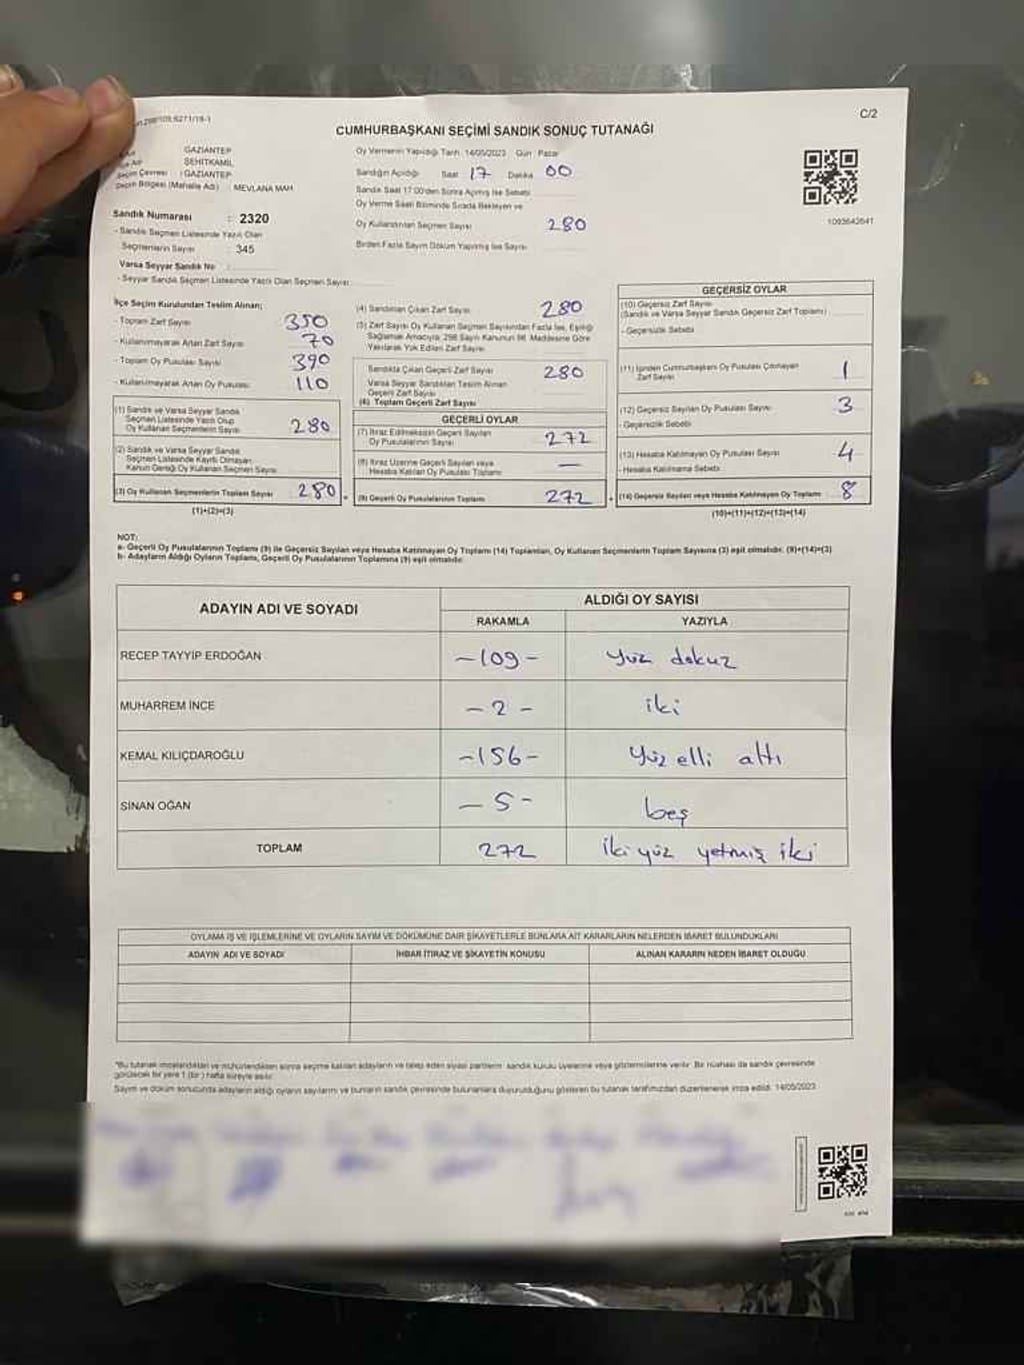 C/2
CUMHURBAŞKANI SEÇİMİ SANDIK SONUÇ TUTANAĞI
GAZİANTEP
ŞEHİTKAMİL
Seçim Çevresi : GAZİANTEP
Seçim Bölgesi (Mahalle Adı) : MEVLANA MAH
Sandık Numarası : 2320
- Sandık Seçmen Listesinde Yazılı Olan
Seçmenlerin Sayısı : 345
Varsa Seyyar Sandık No :
- Seyyar Sandık Seçmen Listesinde Yazılı Olan Seçmen Sayısı:
Oy Vermenin Yapıldığı Tarih: 14/05/2023 Gün: Pazar
Sandığın Açıldığı Saat 17 Dakika 00
Sandık Saat 17:00'den Sonra Açılmış İse Sebebi
Oy Verme Saati Bitiminde Sırada Bekleyen ve
Oy Kullandırılan Seçmen Sayısı 280
Birden Fazla Sayım Döküm Yapılmış İse Sayısı
1093642641
İlçe Seçim Kurulundan Teslim Alınan;
- Toplam Zarf Sayısı 350
- Kullanılmayarak Artan Zarf Sayısı 70
- Toplam Oy Pusulası Sayısı 390
- Kullanılmayarak Artan Oy Pusulası 110
(1) Sandık ve Varsa Seyyar Sandık
Seçmen Listesinde Yazılı Olup
Oy Kullanan Seçmenlerin Sayısı 280
(2) Sandık ve Varsa Seyyar Sandık
Seçmen Listesinde Kayıtlı Olmayan
Kanun Gereği Oy Kullanan Seçmen Sayısı
(3) Oy Kullanan Seçmenlerin Toplam Sayısı 280
(1)+(2)=(3)
(4) Sandıktan Çıkan Zarf Sayısı 280
(5) Zarf Sayısı Oy Kullanan Seçmen Sayısından Fazla İse, Eşitliği
Sağlamak Amacıyla, 298 Sayılı Kanunun 98. Maddesine Göre
Yakılarak Yok Edilen Zarf Sayısı
Sandıkta Çıkan Geçerli Zarf Sayısı 280
Varsa Seyyar Sandıktan Teslim Alınan
Geçerli Zarf Sayısı
(6) Toplam Geçerli Zarf Sayısı
GEÇERLİ OYLAR
(7) İtiraz Edilmeksizin Geçerli Sayılan
Oy Pusulalarının Sayısı 272
(8) İtiraz Üzerine Geçerli Sayılan veya
Hesaba Katılan Oy Pusulası Toplamı —
(9) Geçerli Oy Pusulalarının Toplamı 272
GEÇERSİZ OYLAR
(10) Geçersiz Zarf Sayısı
(Sandık ve Varsa Seyyar Sandık Geçersiz Zarf Toplamı)
- Geçersizlik Sebebi
(11) İçinden Cumhurbaşkanı Oy Pusulası Çıkmayan
Zarf Sayısı 1
(12) Geçersiz Sayılan Oy Pusulası Sayısı 3
- Geçersizlik Sebebi
(13) Hesaba Katılmayan Oy Pusulası Sayısı 4
- Hesaba Katılmama Sebebi
(14) Geçersiz Sayılan veya Hesaba Katılmayan Oy Toplamı 8
(10)+(11)+(12)+(13)=(14)
NOT:
a- Geçerli Oy Pusulalarının Toplamı (9) ile Geçersiz Sayılan veya Hesaba Katılmayan Oy Toplamı (14) Toplamları, Oy Kullanan Seçmenlerin Toplam Sayısına (3) eşit olmalıdır. (9)+(14)=(3)
b- Adayların Aldığı Oyların Toplamı, Geçerli Oy Pusulalarının Toplamına (9) eşit olmalıdır.
ADAYIN ADI VE SOYADI
ALDIĞI OY SAYISI
RAKAMLA YAZIYLA
RECEP TAYYİP ERDOĞAN -109- yüz dokuz
MUHARREM İNCE -2- iki
KEMAL KILIÇDAROĞLU -156- yüz elli altı
SİNAN OĞAN -5- beş
TOPLAM 272 iki yüz yetmiş iki
OYLAMA İŞ VE İŞLEMLERİNE VE OYLARIN SAYIM VE DÖKÜMÜNE DAİR ŞİKAYETLERLE BUNLARA AİT KARARLARIN NELERDEN İBARET BULUNDUKLARI
ADAYIN ADI VE SOYADI İHBAR İTİRAZ VE ŞİKAYETİN KONUSU ALINAN KARARIN NEDEN İBARET OLDUĞU
*Bu tutanak imzalandıktan ve mühürlendikten sonra seçime katılan adayların ve talep eden siyasi partilerin sandık kurulu üyelerine veya gözlemcilerine verilir. Bir nüshası da sandık çevresinde
görülecek bir yere 1 (bir) hafta süreyle asılır.
Sayım ve döküm sonucunda adayların aldığı oyların sayılarını ve bunların sandık çevresinde bulunanlara duyurulduğunu gösteren bu tutanak tarafımızdan düzenlenerek imza edildi. 14/05/2023